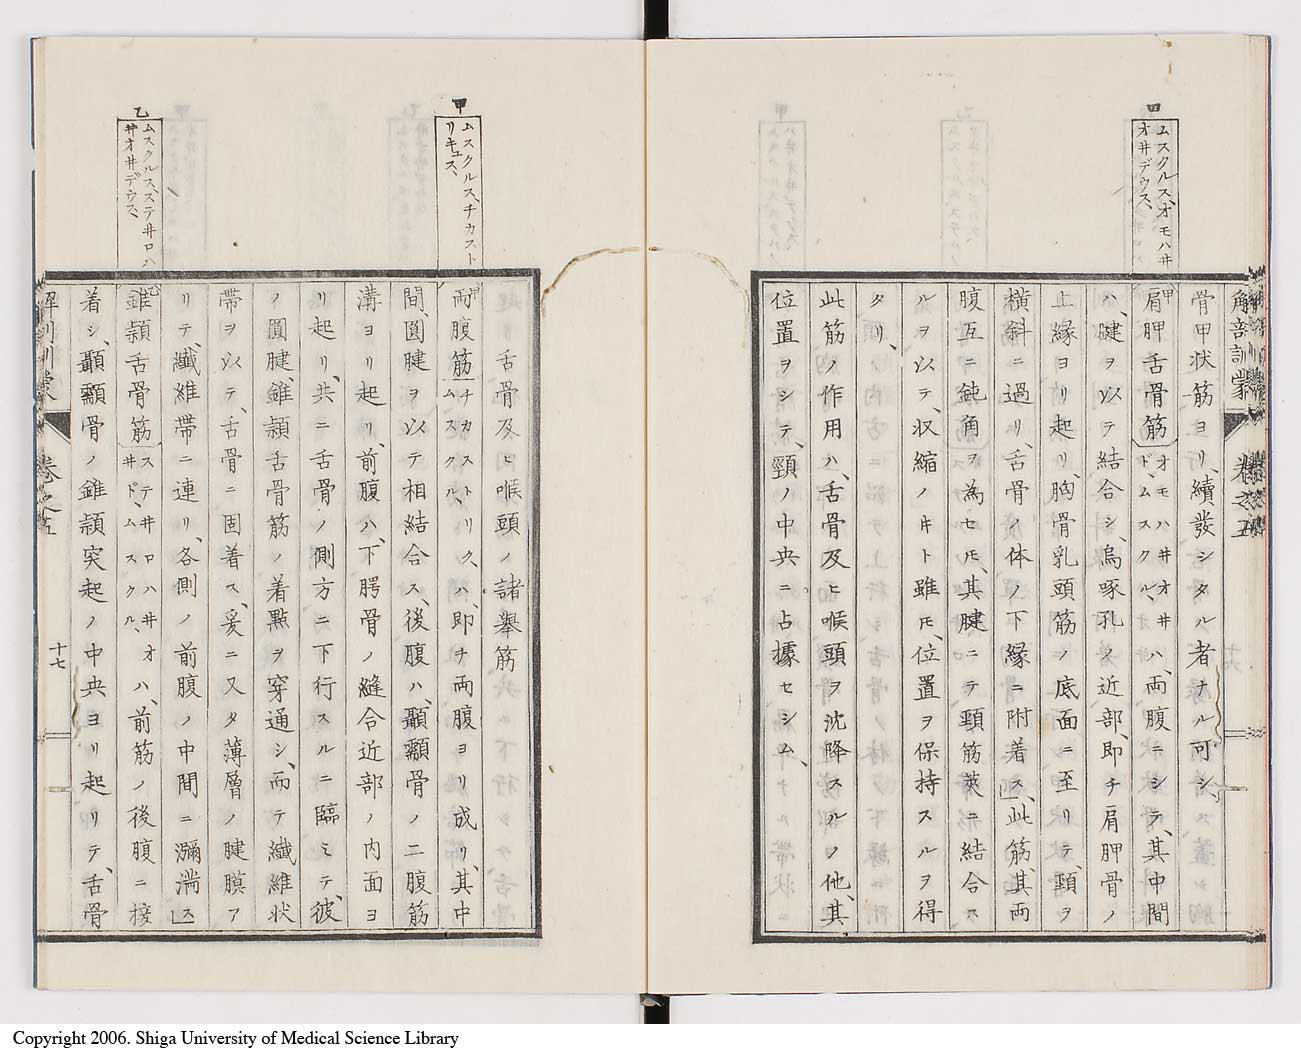 甲
ムスクルス、オモハ井
オ井デウス、
解剖訓蒙
卷之五
骨甲状筋ヨリ、續發シタル者ナル可シ、
肩胛舌骨筋
オモハ井オ井
ド、ムスクル、
ハ、両腹ニシテ、其中間
ハ、腱ヲ以テ結合シ、烏啄孔ノ近部、即チ肩胛骨ノ
上縁ヨリ起リ、胸骨乳頭筋ノ底面ニ至リテ、頸ヲ
横斜ニ過リ、舌骨ノ体ノ下縁ニ附着ス、此筋、其両
腹互ニ鈍角ヲ為セ𪜈、其腱ニテ頸筋莢ニ結合ス
ルヲ以テ、収縮ノ𪜈ト雖𪜈、位置ヲ保持スルヲ得
タリ、
此筋ノ作用ハ、舌骨及ヒ喉頭ヲ沈降スルノ他、其
位置ヲシテ、頸ノ中央ニ占據セシム、
甲
ムスクルス、チカスト
リキュス、
乙
ムスクルス、ステ井ロハ
井オ井デウス、
舌骨及ヒ喉頭ノ諸擧筋
両腹筋
チカストリク、
ムスクル、
ハ、即チ両腹ヨリ成リ、其中
間、圓腱ヲ以テ相結合ス、後腹ハ、顳顬骨ノ二腹筋
溝ヨリ起リ、前腹ハ、下腭骨ノ縫合近部ノ内面ヨ
リ起リ、共ニ舌骨ノ側方ニ下行スルニ臨ミテ、彼
ノ圓腱、錐頴舌骨筋ノ着點ヲ穿通シ、而テ纎維状
帯ヲ以テ、舌骨ニ固着ス、爰ニ又タ薄層ノ腱膜ア
リテ、纎維帯ニ連リ、各側ノ前腹ノ中間ニ瀰満ス
錐頴舌骨筋
ステ井ロハ井オ
井ド、ムスクル、
ハ、前筋ノ後腹ニ接
着シ、顳顬骨ノ錐頴突起ノ中央ヨリ起リテ、舌骨
解剖訓蒙
卷之五
十七
Copyright 2006. Shiga University of Medical Science Library